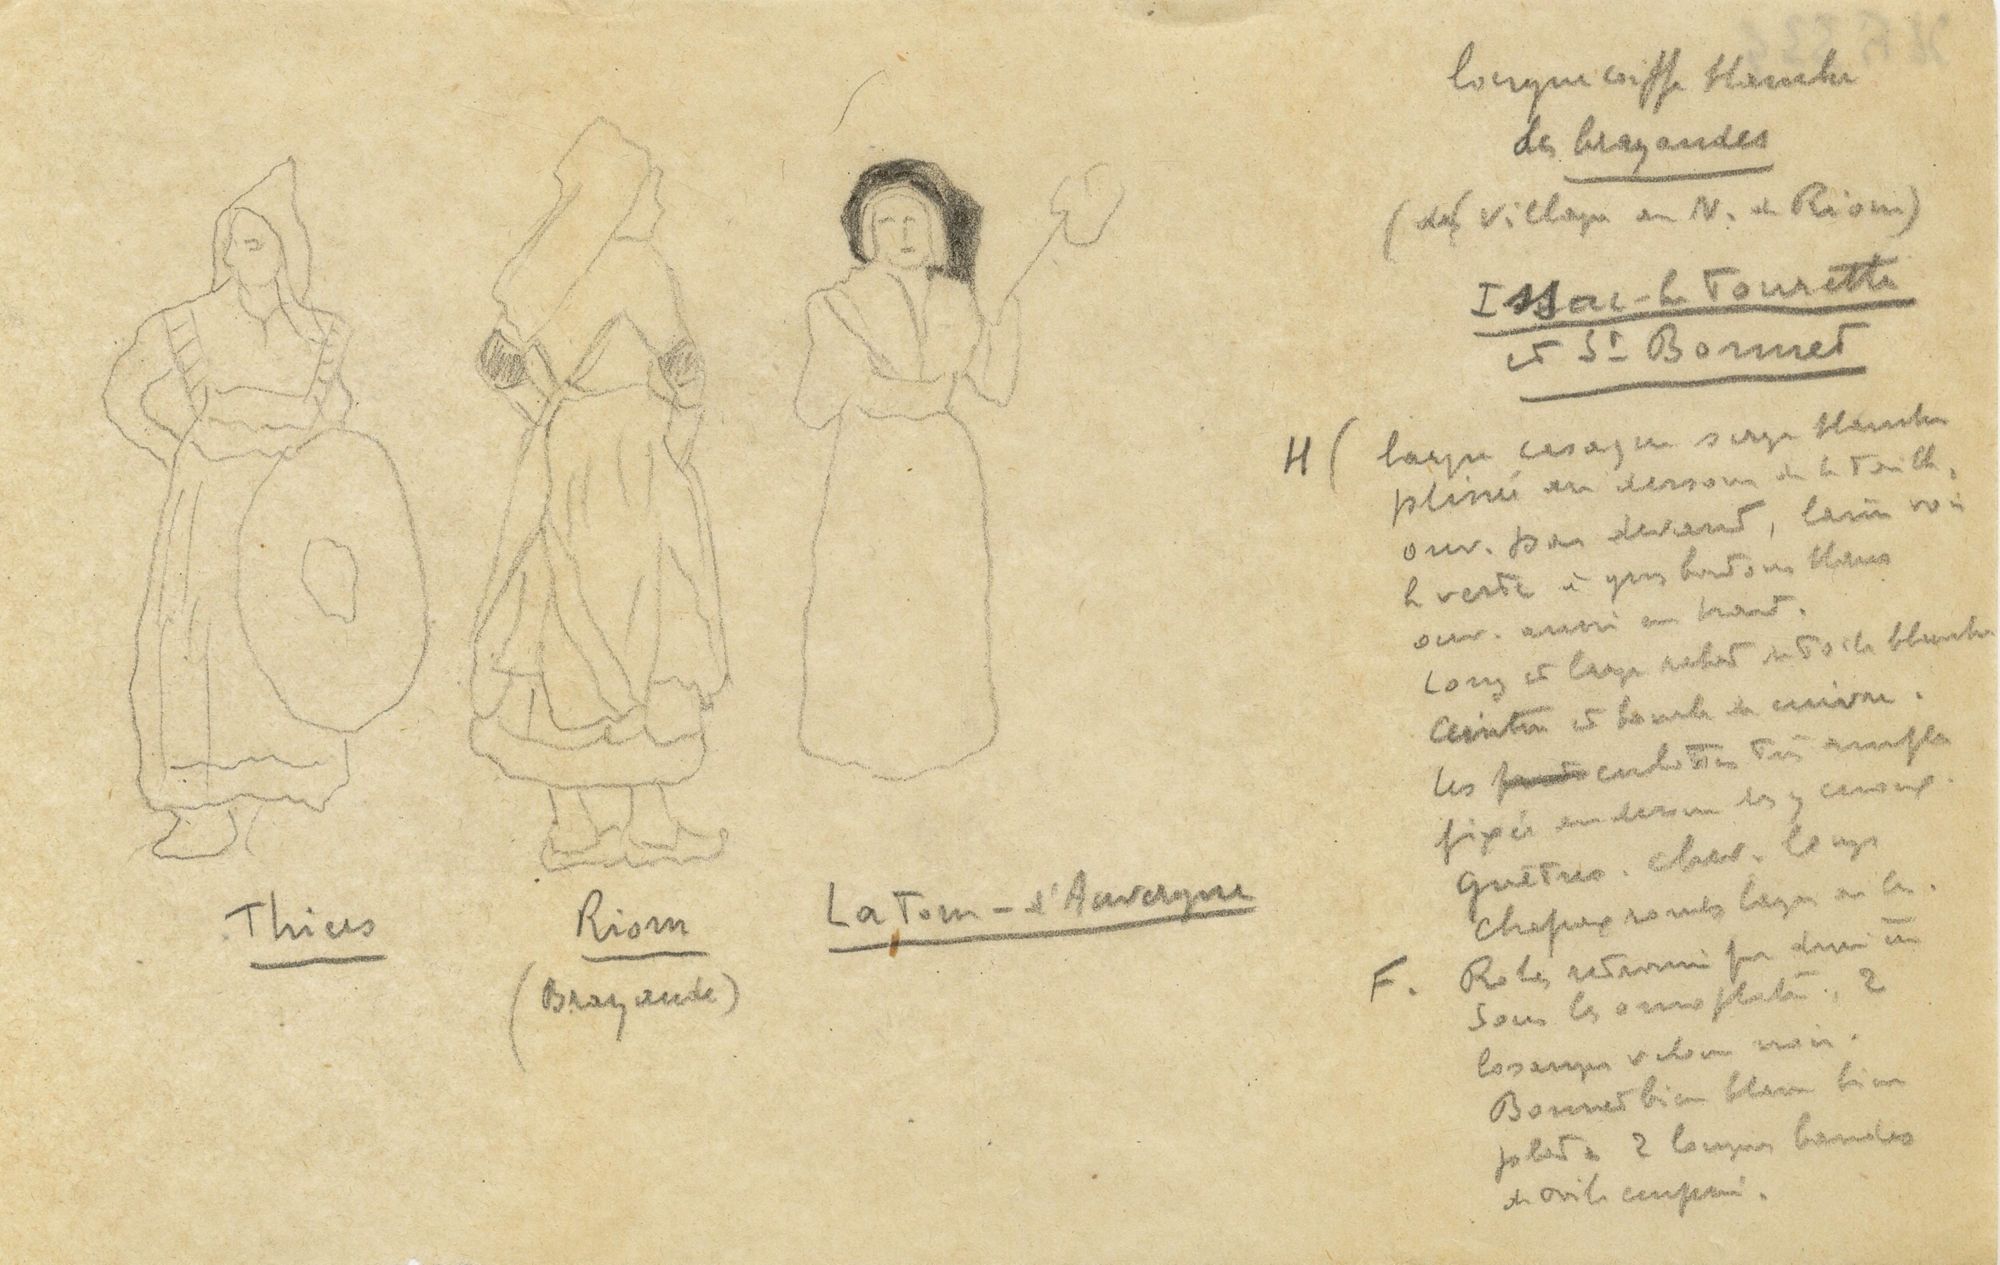 Thiers
Riom
(Brayaude)
La Tour-d'Auvergne
longue coiffe blanche
des brayaudes
(des village au N. de Riom)
Issac-la Tourette
et St Bonnet
H ( large casaque serge blanche
plissée au dessous de la taille,
ouv. par devant, laisse voir
la veste à gros boutons blancs
ouv. aussi en haut.
Long et large rabat de toile blanche
Ceinture et boucle de cuivre.
Les culottes très amples
fixées au dessous des genoux.
Guêtres. chev. longs
Chapeaux ronds larges
F. Robes retroussi par derrière
sous les omoplates, 2
losanges velours noir.
Bonnet bien blanc bien
plat à 2 longues bandes
de toile empesé.